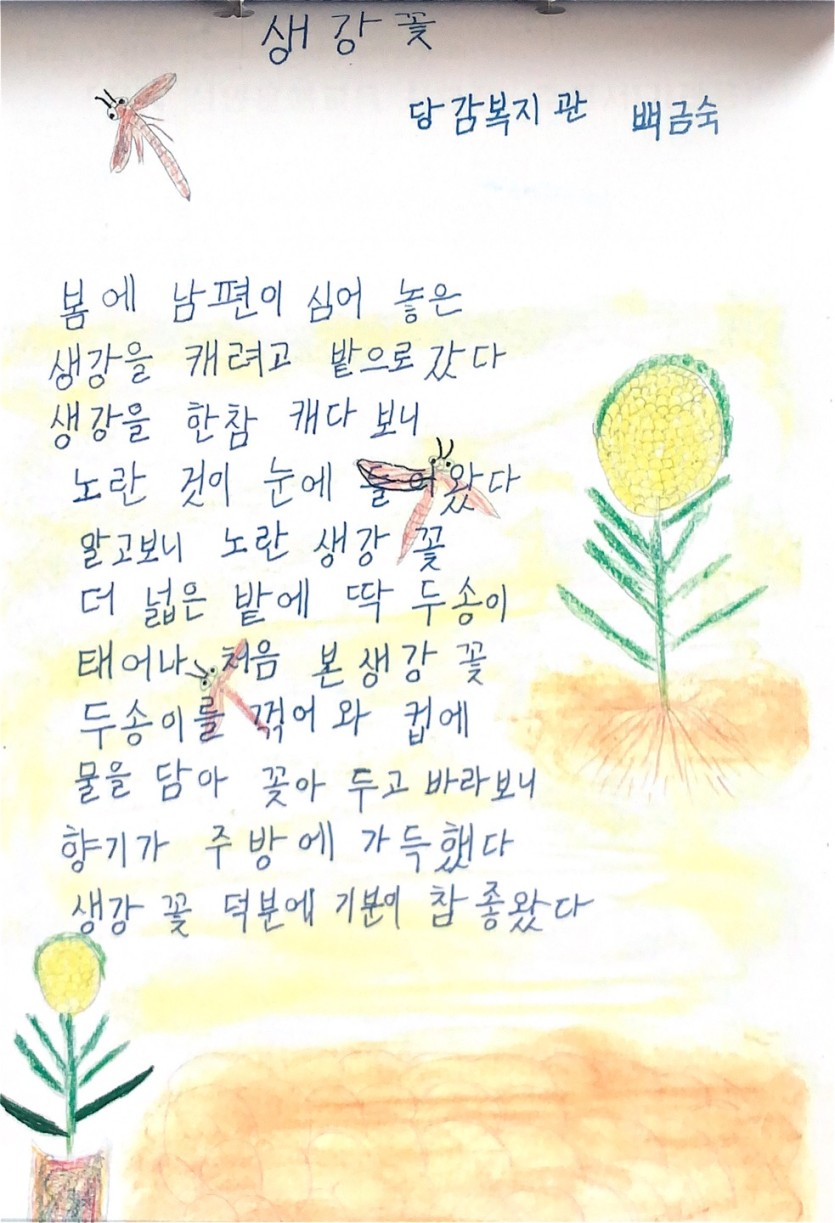 생강꽃
당감복지관 빽금숙
봄에 남편이 심어 놓은
생강을 캐려고 밭으로 갔다
생강을 한참 캐다 보니
노란 것이 눈에 들어왔다
알고보니 노란 생강 꽃
더 넓은 밭에 딱 두송이
태어나 처음 본 생강 꽃
두송이를 꺾어 와 컵에
물을 담아 꽃아 두고 바라보니
향기가 주방에 가득했다
생강 꽃 덕분에 기분이 참 좋왔다